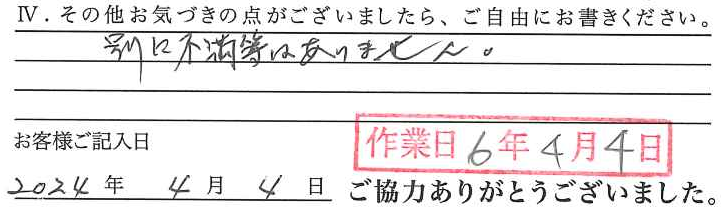 Ⅳ．その他お気づきの点がございましたら、ご自由にお書きください。
別に不満等はありません。
お客様ご記入日
作業日6年4月4日
2024年 4月 4日
ご協力ありがとうございました。